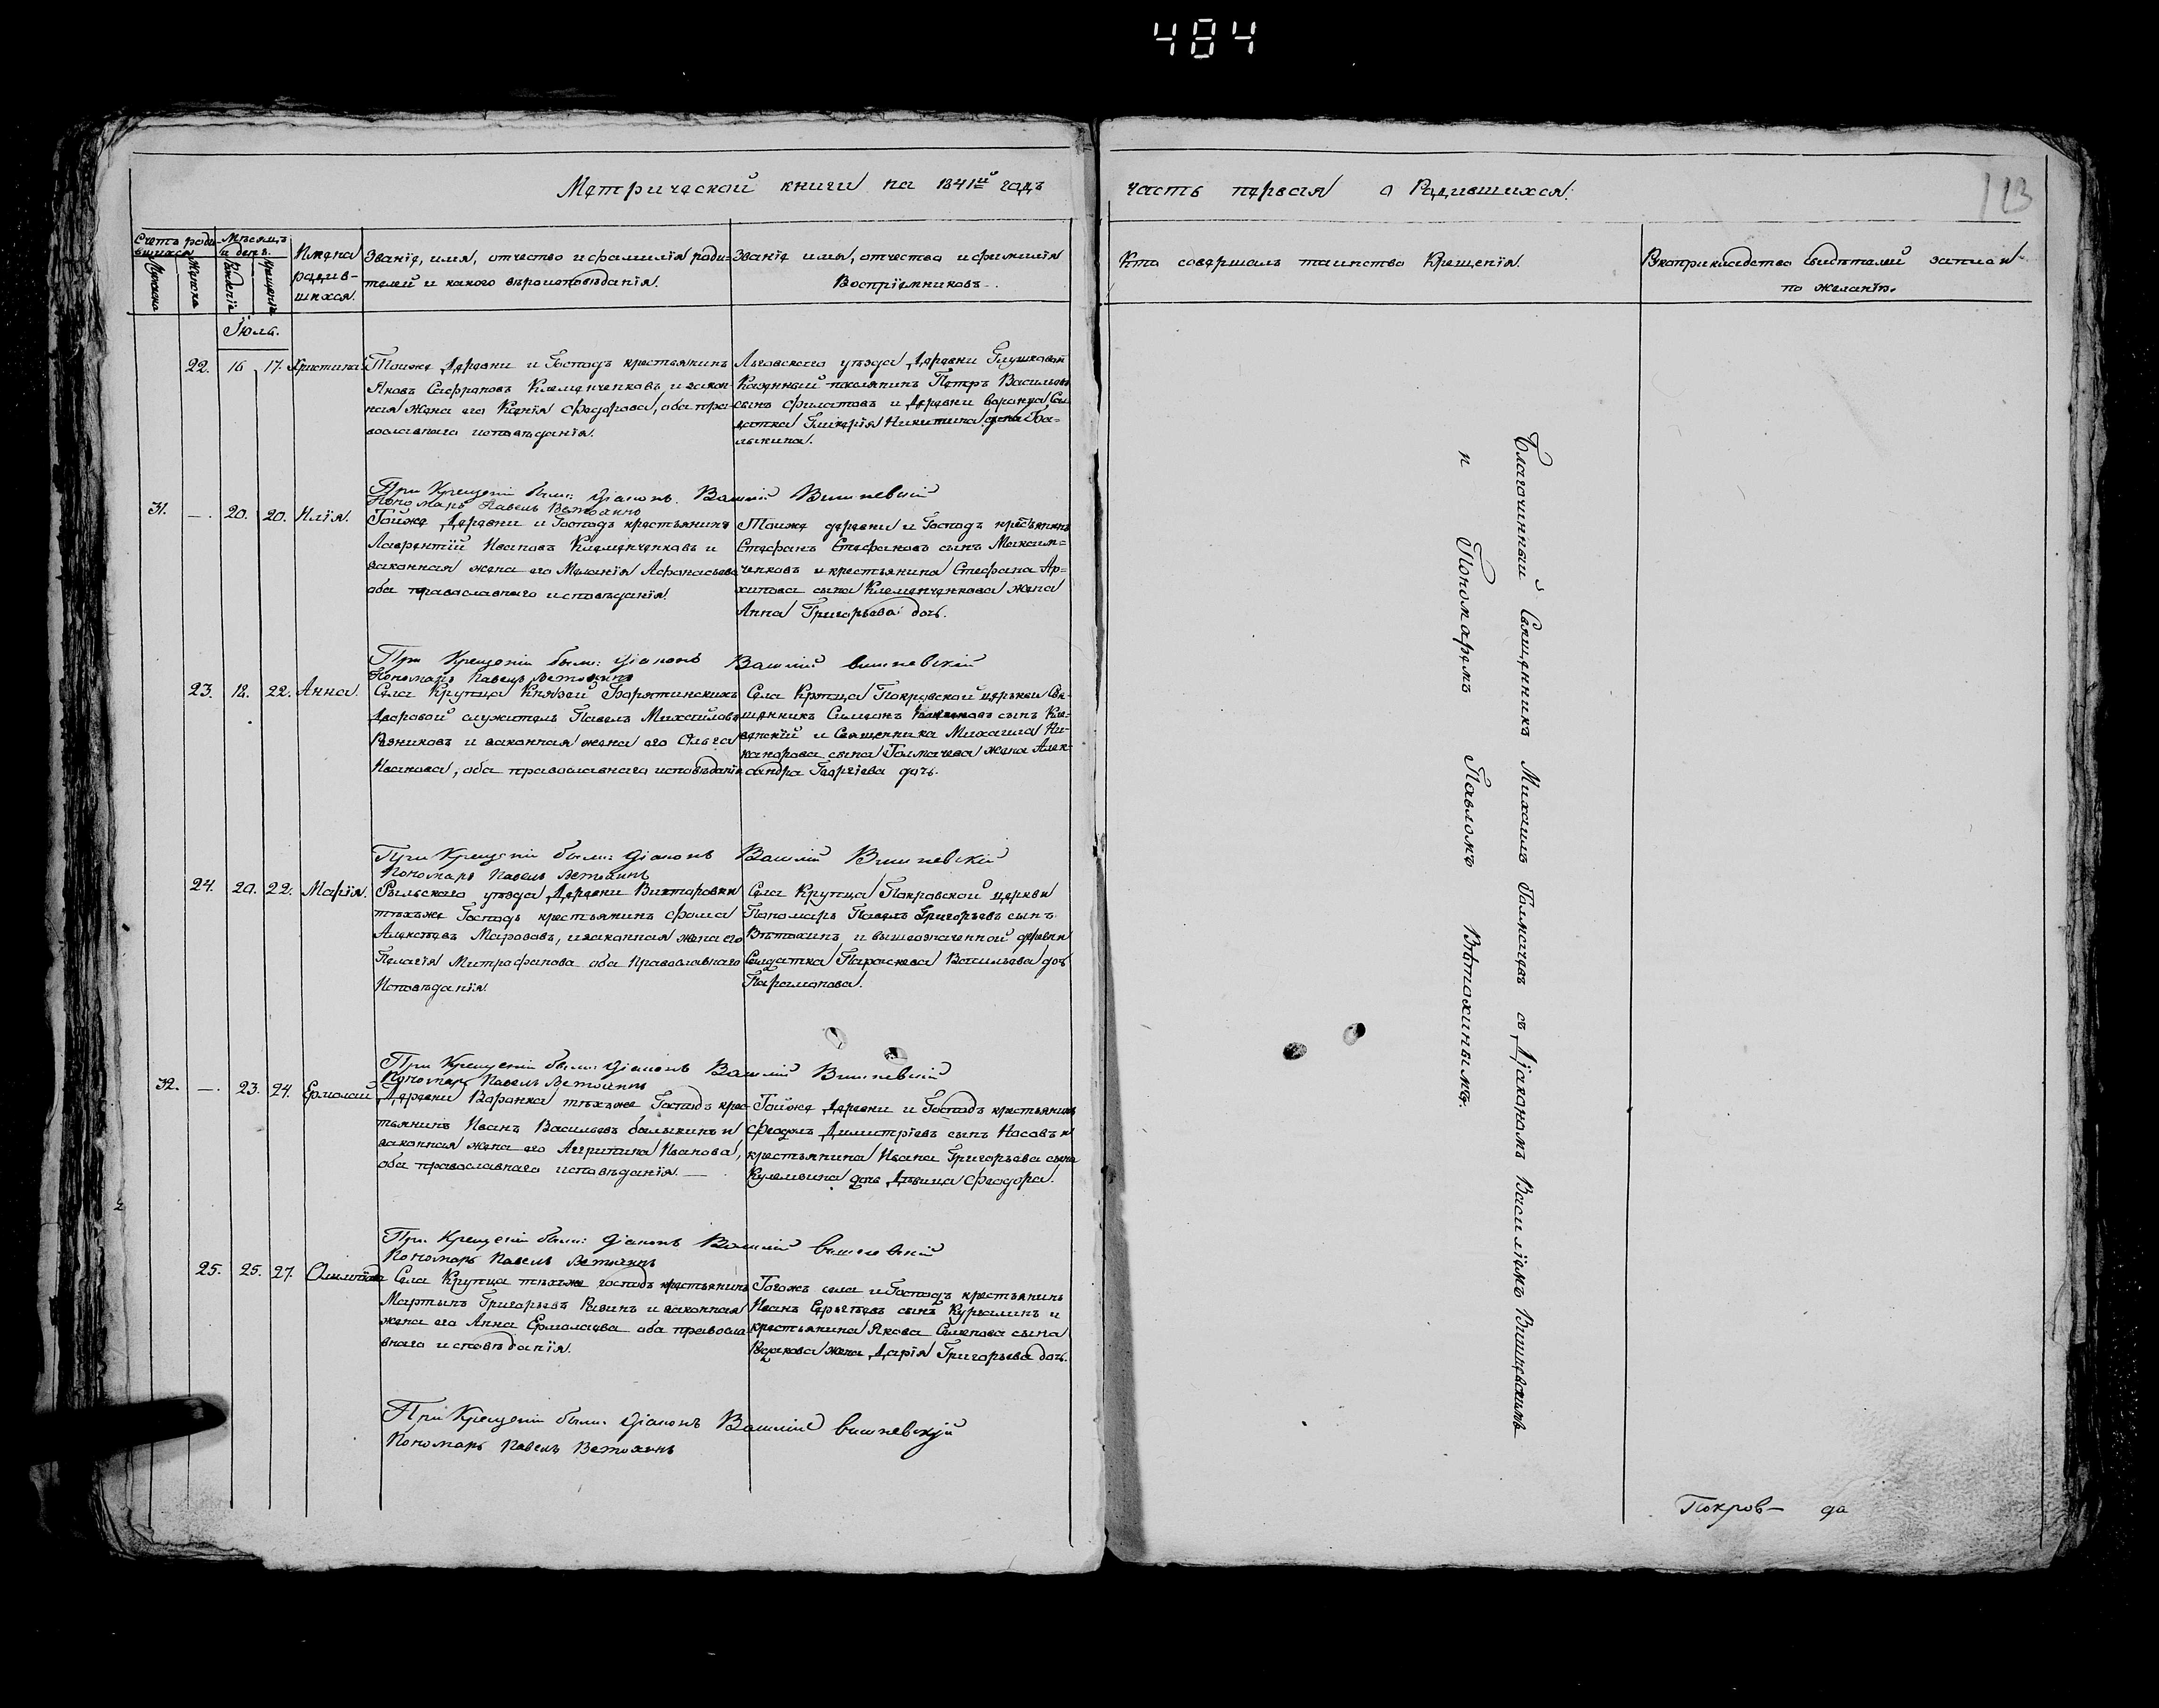 484
Метрической книги на 1841й годъ
часть первая о Родившихся.
113
Счетъ роди-
вшихся.
Мужеска
Женска
Мѣсяцъ
и день.
Рожденія
Крещенія
Имена
родив-
шихся.
Званіе, имя, отчество и фамилія роди-
телей и какого вѣроисповѣданія.
Званіе имя, отчество и фамилія
Воспріемниковъ.
Кто совершалъ таинство Крещенія.
Рукоприкладство свидѣтелей записи
по желанію.
Іюль.
22. 16 17. Христина.
Тоиже Деревни и Господъ крестьянинъ
Яковъ Сафроновъ Клеменченковъ и закон-
ная жена его Ксенія Федорова, оба пра-
вославнаго исповѣданія.
Льговскаго уѣзда Деревни Глушковой
Казенный поселянинъ Петръ Васильевъ
сынъ Филатовъ и Деревни Воронка Сол-
датка Гликерія Никитина дочь Ба-
лыкина.
При Крещеніи были: Діаконъ Василій Вишневскій
Пономарь Павелъ Ветохинъ
31. —. 20. 20. Илія.
Тойже Деревни и Господъ крестьянинъ
Лаврентій Ивановъ Клеменченковъ и
законная жена его Меланія Афонасьева
оба православнаго исповѣданія.
Тоиже деревни и Господъ крестьянинъ
Стефанъ Стефановъ сынъ Максим-
ченковъ и крестьянина Стефана Ар-
хипова сына Клеменченкова жена
Анна Григорьева дочь.
При Крещеніи были: Діаконъ Василій Вишневскій
Пономарь Павелъ Ветохинъ
23. 18. 22. Анна.
Села Крупца Князей Барятинскихъ
Дворовой служитель Павелъ Михайловъ
Резниковъ и законная жена его Ольга
Иванова, оба православнаго исповѣданія
Села Крупца Покровской церкви Свя-
щенникъ Симеонъ сынъ Кле-
венскій и Священника Михаила Ни-
канорова сына Толмачева жена Алек-
сандра Георгіева дочь.
При Крещеніи были: Діаконъ Василій Вишневскій
Пономарь Павелъ Ветохинъ
24. 20. 22. Марія.
Рыльскаго уѣзда Деревни Викторовки
тѣхъже Господъ крестьянинъ Фома
Алексѣевъ Марозовъ, и законная жена его
Пелагія Митрофанова оба Православнаго
Исповѣданія.
Села Крупца Покровской церкви
Пономарь Павелъ Григорьевъ сынъ
Вѣтохинъ и вышеозначенной деревни
Солдатка Параскева Васильева дочь
Парамонова.
При Крещеніи были: Діаконъ Василій Вишневскій
Пономарь Павелъ Ветохинъ
32. —. 23. 24. Ермолай
Деревни Воронка тѣхъже Господъ крес-
тьянинъ Иванъ Васильевъ балыкинъ и
законная жена его Агрипина Иванова,
оба православнаго исповѣданія. —
Тойже Деревни и Господъ крестьянинъ
Феодоръ Димитріевъ сынъ Носовъ и
крестьянина Ивана Григорьева сына
дочь Дѣвица Феодора.
При Крещеніи были: Діаконъ Василій Вишневскій
Пономарь Павелъ Ветохинъ
25. 25. 27. Олимпіада
Села Крупца тѣхъже господъ крестьянинъ
Мартынъ Григорьевъ и законная
жена его Анна Ермолаева оба правосла
внаго исповѣданія.
Тогожъ села и Господъ крестьянинъ
Иванъ Сергѣевъ сынъ и
крестьянина Якова Семенова сына
жена Дарія Григорьева дочь.
При Крещеніи были: Діаконъ Василій Вишневскій
Пономарь Павелъ Ветохинъ
Благочинный Священникъ Михаилъ Толмачевъ съ Діакономъ Василіемъ Вишневскимъ
и Пономаремъ Павломъ Вѣтохинымъ.
Покров— да